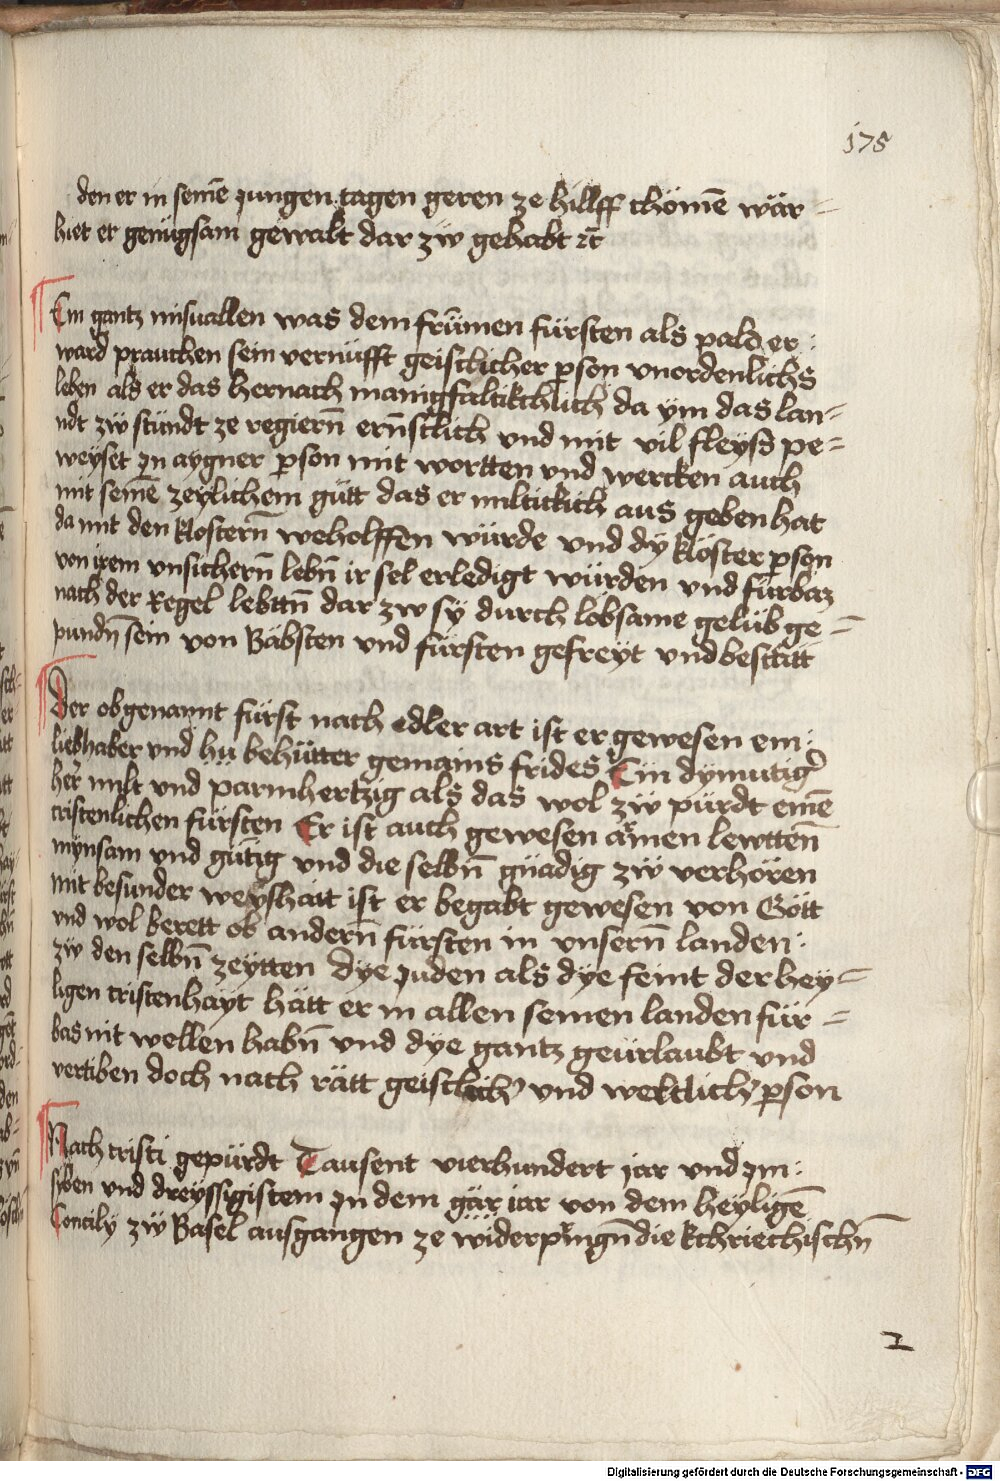 175
den er in seinē jungen tagen geren ze hillff chömē wär =
hiet er genügsam gewalt dar zw̄ gehabt ⁊c̄
Ein gantz misuallen was dem frümen fürsten als pald er :
ward prauchen sein vernüfft geistlicher ꝑson vnordenlichs
leben als er das hernach manigfaltikchlich da ÿm das lan=
ndt zẅ stündt ze regiern̄ ern̄stlich vnd mit vil fleyß pe=
weyset jn aygner ꝑson mit wortten vnd wercken auch
mit seinē zeylichem gütt das er miltickich aus geben hat
da mit den klostern̄ weholffen würde vnd dy klöster ꝑson
von irem vnsichern̄ lebn̄ ir sel erledigt würden vnd fürbaz
nach der Regel lebttn̄ dar zw sÿ durch lobsame gelüb ge=
pundn̄ sein von Bäbsten vnd fürsten gefreyt vnd bestätt
Der obgenannt fürst nach edler art ist er gewesen ein :
liebhaber vnd hü behütter gemains frides Ein dymutig̉
her̄ milt vnd parmhertzig als das wol zẅ pürdt einē
cristenlichen fürsten Er ist auch gewesen armen lewttēn
mynsam vnd gütig vnd die selbn̄ gnädig zẅ verhören
mit besunder weyshait ist er begabt gewesen von Gött
vnd wol berett ob andern̄ fürsten in vnsern̄ landen :
zẅ den selbn̄ zeytten dye juden als dye feint der hey=
ligen cristenhäyt hätt er in allen seinen landen für =
bas nit wellen habn̄ vnd dye gantz geürlaubt vnd
vertiben doch nach rätt geistlich̉ vnd weltlich̉ ꝑson
Nach cristi gepürdt Tausent vierhundert jar vnd jm :
siben vnd dreyssigistem jn dem gär jar von dem heyligē
Concily zẅ Basel ausgangen ze widerpringn̄ die kchriechischn̄
2
Digitalisierung gefördert durch die Deutsche Forschungsgemeinschaft - DFG